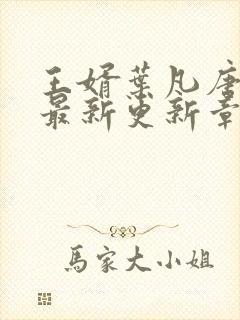 王婿葉凡唐
最新更新章
馬家大小姐